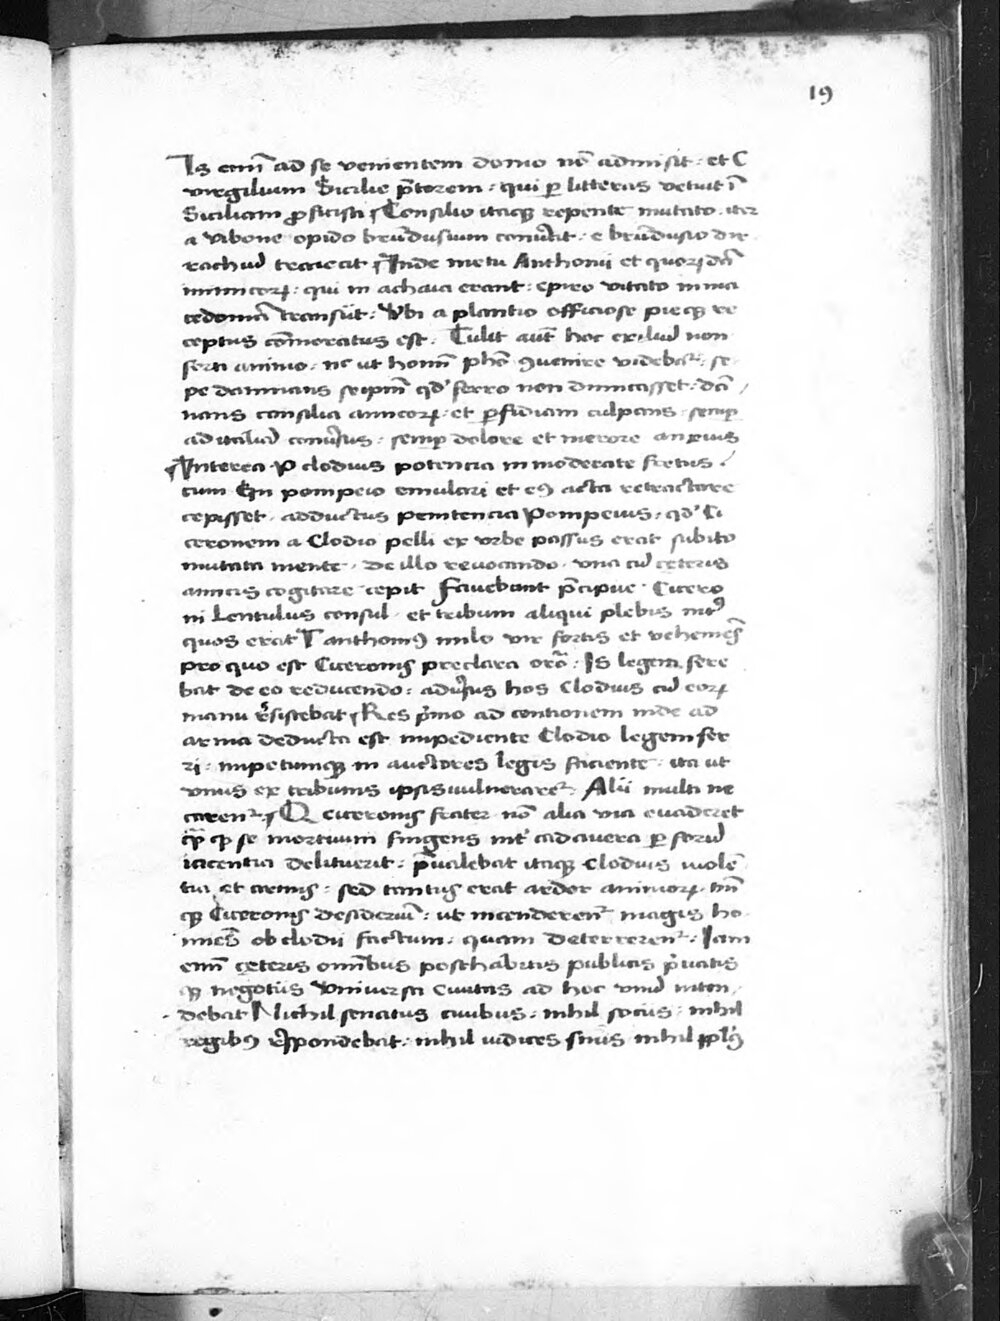 19
Is eni̅ ad se venientem domo no̅ admisit · et C
virgilium Sicilie p̅torem · qui ꝑ litteras vetuit ī
Siciliam ꝓficisci ¶ Consilio itaqꝫ repente mutato · iter
a vibone opido bru̅dusium conu̓tit · e bru̅dusio dir
rachiu̅ traiecit ¶ Inde metu Anthonii et quorꝝda̅
inimicorꝝ · qui in achaia erant · epiro vitato in ma
cedonia̅ transiit · Vbi a plantio officiose pieqꝫ re
ceptus co̅moratus est · Tulit aut̅ hoc exiliu̅ non
forti animo · nc̅ ut homi̅ pho̅ ꝯuenire videbat᷑ · se
pe damnans seip̅m qd̓ ferro non dimicasset · da̅
nans consilia amicorꝝ · et ꝑfidiam culpans · semꝑ
ad italia̅ conu̓sus · semꝑ dolore et merore anxius
¶ Interea P clodius potencia inmoderate fretus ·
cum Gn pompeio emulari et eiꝰ acta retractare
cepisset · adductus penitencia Pompeius · qd̓ Ci
ceronem a Clodio pelli ex vrbe passus erat subito
mutata mente · de illo reuocando · vna cu̅ ceteris
amicis cogitare cepit Fauebant p̅cipue · Cicero
ni Lentulus consul · et tribuni aliqui plebis int̓
quos erat T anthoniꝰ milo vir fortis et vehemēs
pro quo est Ciceronis preclara oro̅ · Is legem fere
bat de eo reducendo · adu̓sus hos Clodius cu̅ eorꝝ
manu r̓sistebat ¶ Res p̓mo ad contionem inde ad
arma deducta est impediente Clodio legem fer
ri · impetumqꝫ in auctores legis faciente · ita ut
vnus ex tribunis ipsis vulneraret᷑ Alii multi ne
carent᷑ ¶ Q Ciceronis frater no̅ alia via euaderet
qꝫ̅ ꝙ se mortuum fingens int̓ cadauera ꝑ foru̅
iacentia delituerit · p̅ualebat itaqꝫ Clodius viole̅
tia et armis · sed tantus erat ardor animorꝝ · tm̅
qꝫ Ciceronis desideriu̅ · ut incenderent᷑ magis ho
mines̅ ob clodii factum · quam deterrerent᷑ · Iam
eni̅ ceteris omnibus posthabitis publicis p̓uatis
qꝫ negotiis Vniuersa Ciuitas ad hoc vnu̅ inten
debat Nichil senatus ciuibus · nihil sociis · nihil
regibꝰ r̓spondebat · nihil iudices suis nihil ppl̓s